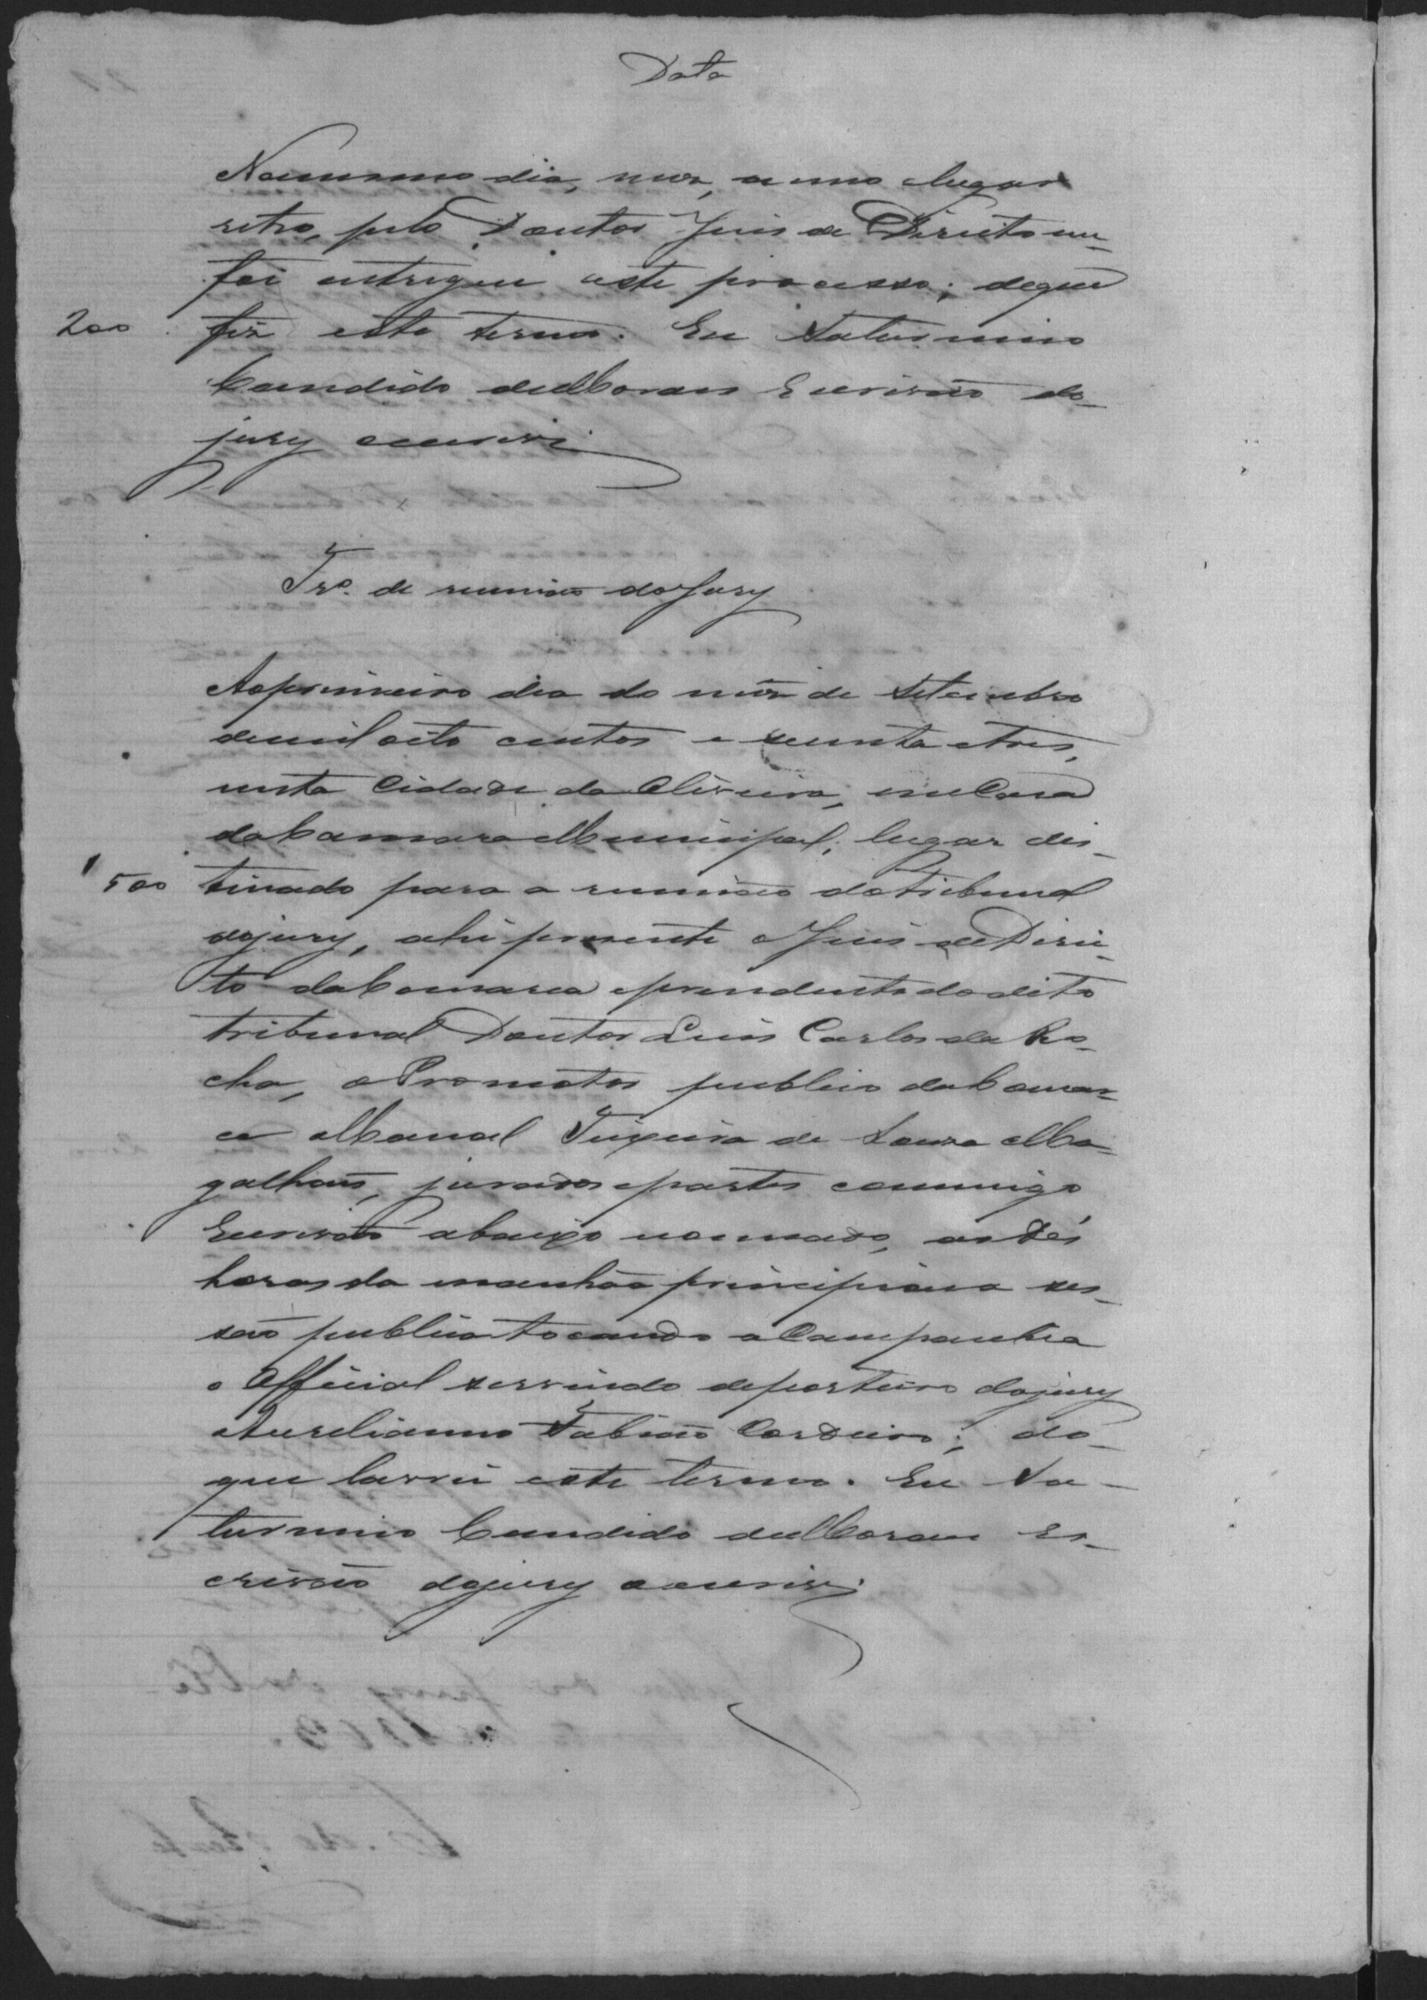 Data
No mesmo dia, mez, anno e lugar
retro, pelo Doutor Juis de Direito me
foi entregue este processo; de que
200 fiz este termo. Eu Saturnino
Candido de Moraes Escrivão do
jury o escrevi
Tr.º de reunião do Jury
Ao primeiro dia do mês de Setembro
de mil oito centos e secenta e tres,
nesta Cidade da Oliveira, em Casa
da Camara Municipal, lugar des-
500 tinado para a reunião do Tribunal
do jury, ahi presente o Juis de Direi-
to da Comarca e presidente do dito
tribunal Doutor Luis Carlos da Ro-
cha, o Promotor publico da Comar-
ca Manoel Teixeira de Souza Ma-
galhães, jurados e partes commigo
Escrivão abaixo nomeado, as Dés
horas da manhãa principiou a ses-
são publica tocando a Campanhia
o Official servindo de porteiro do jury
Aurelianno Fabião Cordeiro; do
que lavrei este termo. Eu Sa-
turnino Candido de Moraes Es-
crivão do jury o escrevi